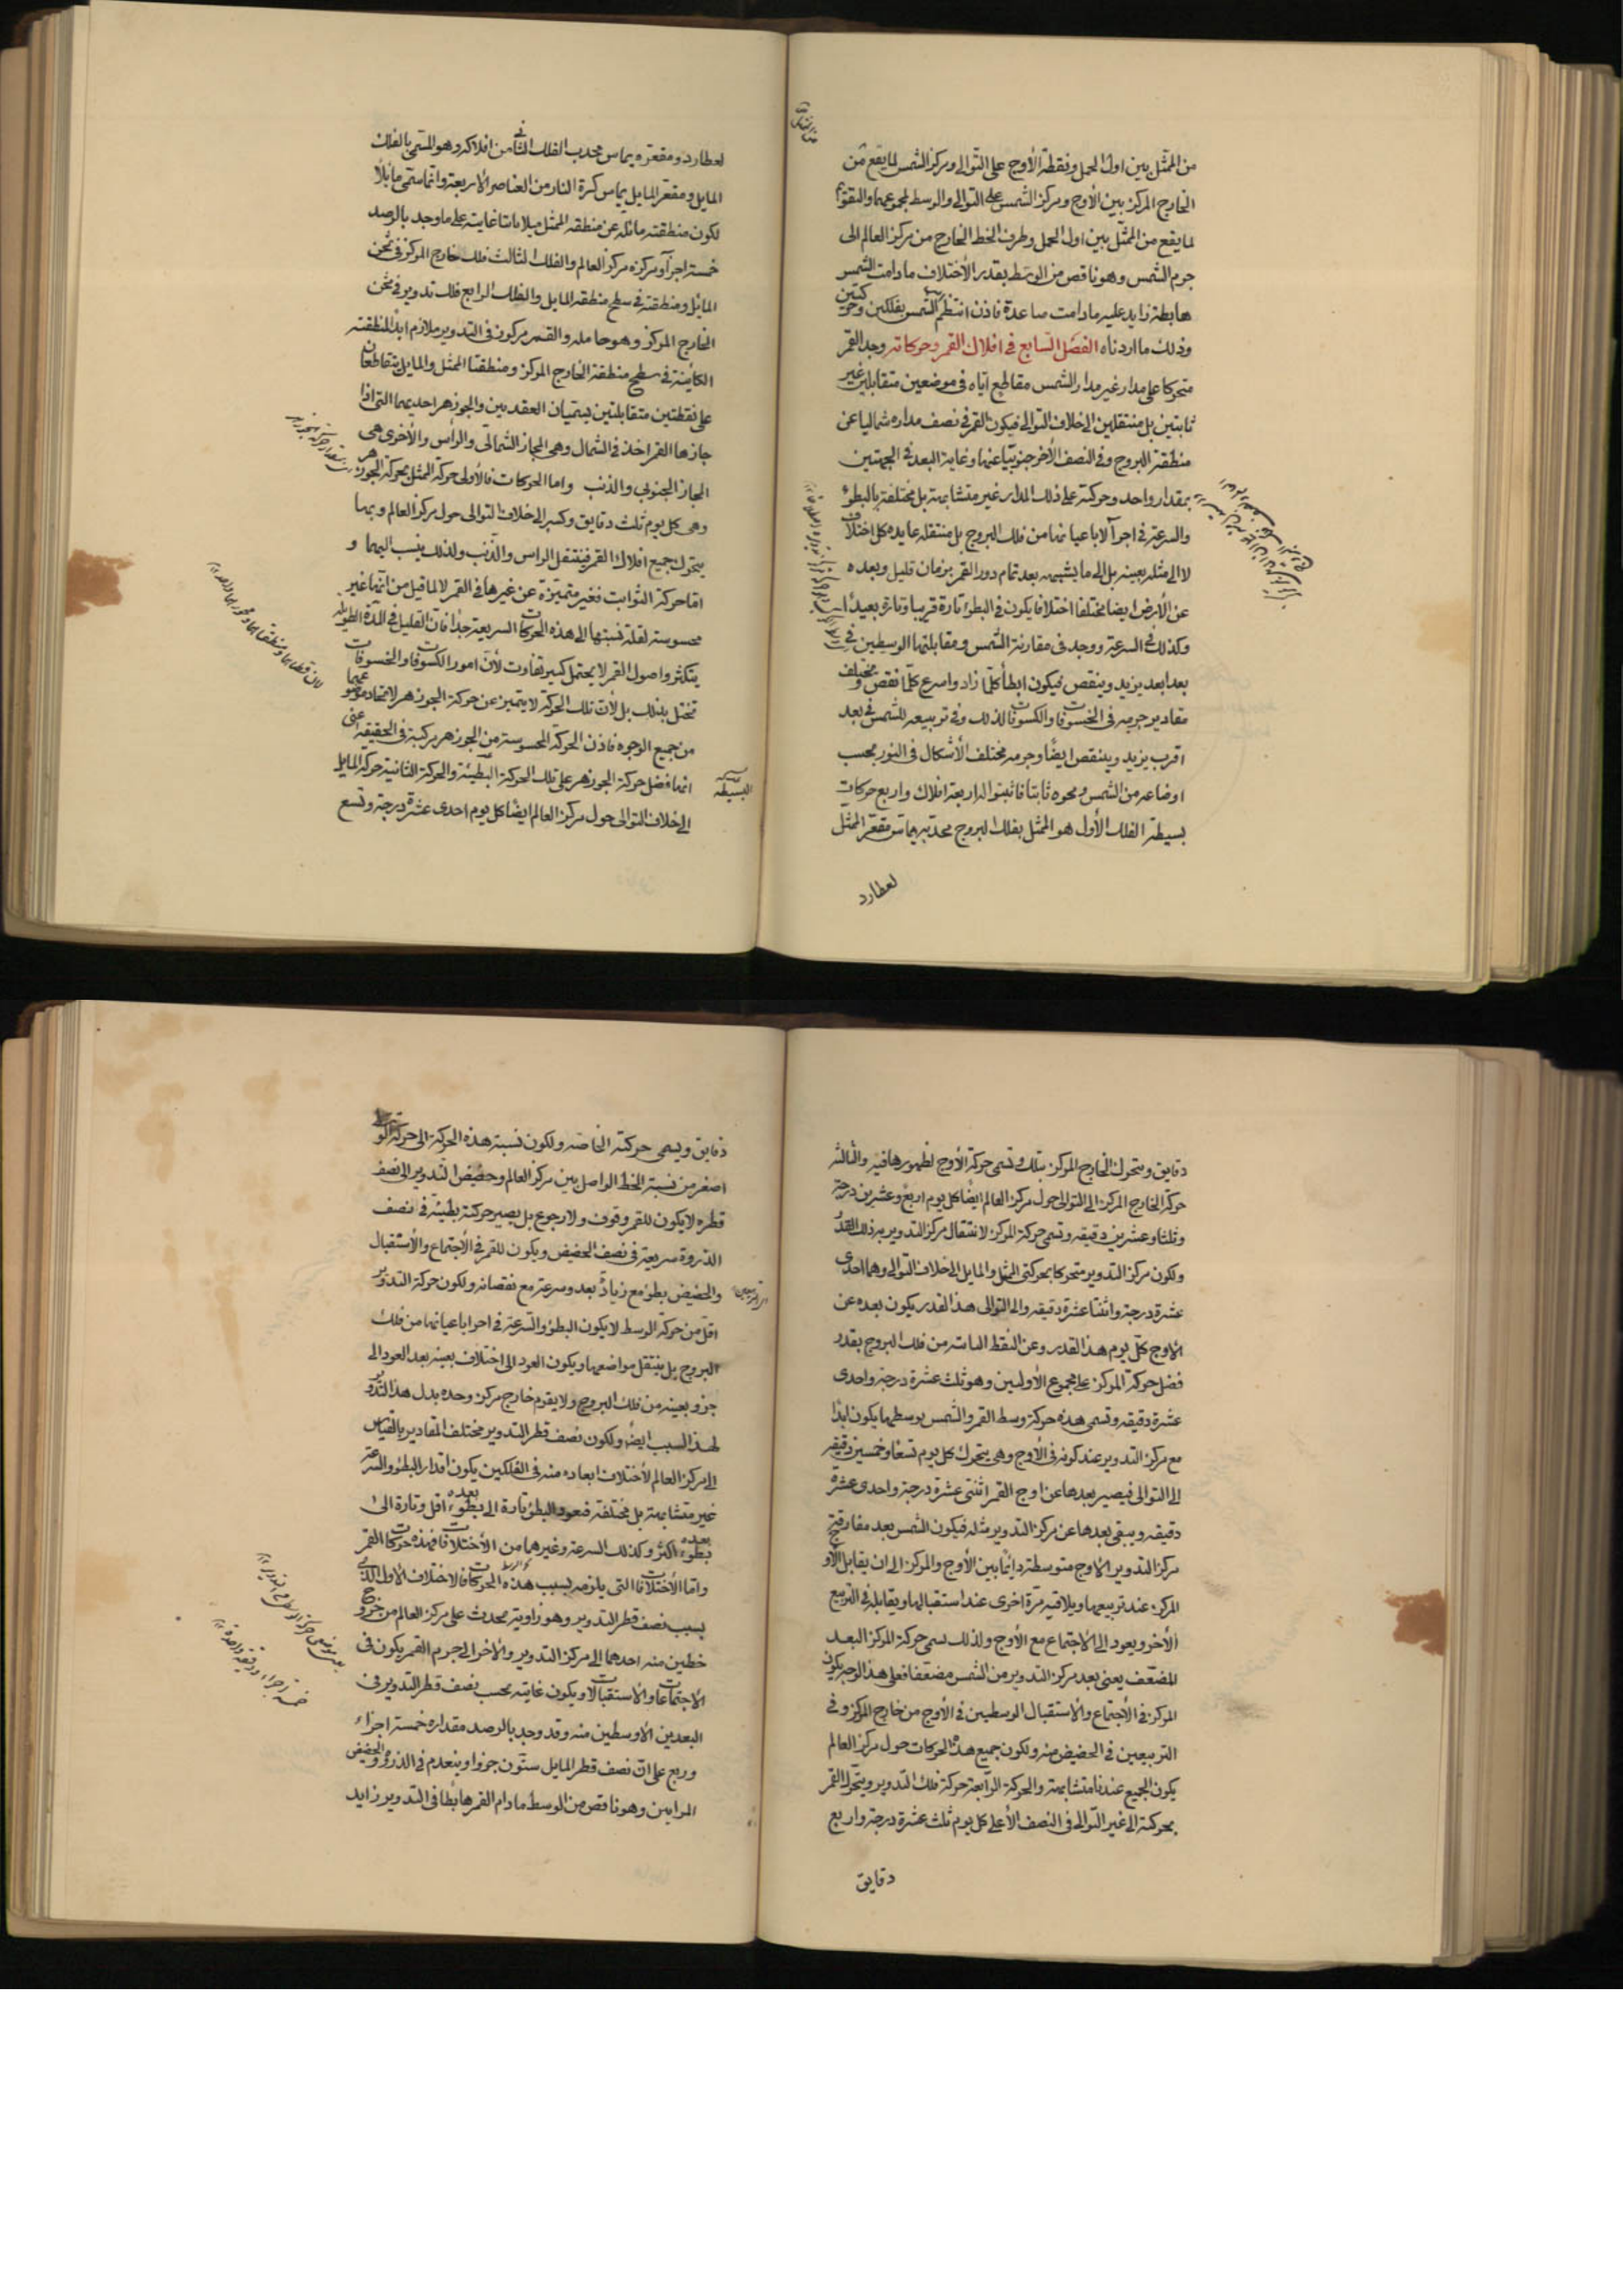 من الممثل بين اول الحمل ونقطة الأوج على التوالى ومركز الشمس لما يقع من
الخارج المركز بين الأوج ومركز الشمس على التوالى والوسط لمجموعهما والتقويم
لما يقع من الممثل بين اول الحمل وطرف الخط الخارج من مركز العالم الى
جرم الشمس وهو ناقص من الوسط بقدر الأختلاف ما دامت الشمس
هابطة زايد عليه مادامت صاعدة فاذن انتظم الشمس بفلكين وحركتين
وذلك ما اردناه الفصل السابع فى افلاك القمر وحركاته وجد القمر
متحركا على مدار غير مدار الشمس مقاطع اياه فى موضعين متقابلين غير
ثابتين بل منتقلين الى خلاف التوالى فيكون القمر فى نصف مداره شماليا عن
منطقة البروج وفى النصف الأخر جنوبيا عنها وغاية البعد فى الجهتين
بمقدار واحد وحركته على ذلك المدار غير متشابهة بل مختلفة بالبطؤ
والسرعة فى اجزآ لا باعيانها من فلك البروج بل منتقلة عايدة كل اختلاف
لا الى مثله بعينه بل الى ما يشبهه بعد تمام دور القمر بزمان قليل وبعده
عن الأرض ايضا مختلفا اختلافا يكون فى البطؤ تارة قريبا وتارة بعيدا
وكذلك فى السرعة ووجد فى مقارنة الشمس ومقابلتها الوسطيين فى
بعد ابعد يزيد وينقص فيكون ابطأ كلما زاد واسرع كلما نقص ومختلف
مقادير جرمه فى الخسوفات والكسوفات لذلك وفى تربيعه للشمس فى بعد
اقرب يزيد وينقص ايضا وجرمه مختلف الأشكال فى النور بحسب
اوضاعه من الشمس ومحوه ثابتا فاثبتوا له اربعة افلاك واربع حركات
بسيطة الفلك الأول هو الممثل بفلك البروج محدبه يماس مقعر الممثل
لعطارد
لعطارد ومقعره يماس محدب الفلك الثانى من افلاكه وهو المسمى بالفلك
المايل ومقعر المايل يماس كرة النار من العناصر الأربعة وانما سمى مائلا
لكون منطقته مائلة عن منطقة الممثل ميلا ما ثابتا غايته على ما وجد بالرصد
خمسة اجزآ ومركزه مركز العالم والفلك الثالث فلك خارج المركز فى ثخن
المائل ومنطقته فى سطح منطقة المايل والفلك الرابع فلك تدوير فى ثخن
الخارج المركز وهو حامله والقمر مركوز فى التدوير ملازم ابدا لمنطقته
الكاينة فى سطح منطقة الخارج المركز ومنطقتا الممثل والمايل يتقاطعان
على نقطتين متقابلتين يسميان العقدتين والجوزهر احديهما التى اذا
جازها القمر اخذ فى الشمال وهى المجاز الشمالى والرأس والأخرى هى
المجاز الجنوبى والذنب واما الحركات فالأولى حركة الممثل بحركة الجوزهر
وهى كل يوم ثلث دقايق وكسر الى خلاف التوالى حول مركز العالم وبها
يتحرك جميع افلاك القمر فينتقل الراس والذنب ولذلك ينسب اليهما و
اما حركة الثوابت فغير متميزة عن غيرها فى القمر لا لما قيل من انها غير
محسوسة لقلة نسبتها الى هذه الحركات السريعة جدا فان القليل فى المدة الطويلة
يتكثر واصول القمر لا يحتمل كثير تفاوت لأن امور الكسوفات والخسوفات
تختل بذلك بل لأن تلك الحركة لا يتميز عن حركة الجوزهر لاتحاد موضوعيهما
من جميع الوجوه فاذن الحركة المحسوسة من الجوزهر مركبة فى الحقيقة اعنى
انها فضل حركة الجوزهر على تلك الحركة البطيئة والحركة الثانية حركة المايل
البسيطة
الى خلاف التوالى حول مركز العالم ايضا كل يوم احدى عشرة درجة وتسع
دقايق ويتحرك الخارج المركز بتلك وتسمى حركة الأوج لظهورها فيه والثالثة
حركة الخارج المركز الى التوالى حول مركز العالم ايضا كل يوم اربع وعشرين درجة
وثلثا وعشرين دقيقة وتسمى حركة المركز لانتقال مركز التدوير به ذلك القدر
ولكون مركز التدوير متحركا بحركتى الممثل والمايل الى خلاف التوالى وهما احدى
عشرة درجة واثنتا عشرة دقيقة والى التوالى هذا القدر يكون بعده عن
الاوج كل يوم هذا القدر وعن النقط الثابتة من فلك البروج بقدر
فضل حركة المركز على مجموع الأوليين وهو ثلث عشرة درجة واحدى
عشرة دقيقة وتسمى هذه حركة وسط القمر والشمس بوسطها يكون ابدا
مع مركز التدوير عند كونه فى الأوج وهى يتحرك كل يوم تسعا وخمسين دقيقة
الى التوالى فيصير بعدها عن اوج القمر اثنتى عشرة درجة واحدى عشرة
دقيقة ويبقى بعدها عن مركز التدوير مثله فيكون الشمس بعد مفارقة
مركز التدوير الاوج متوسطة دائما بين الأوج والمركز الى ان يقابل الأوج
المركز عند تربيعهما ويلاقيه مرة اخرى عند استقبالها ويقابله فى التربيع
الأخر ويعود الى الاجتماع مع الأوج ولذلك سمى حركة المركز البعد
المضعف يعنى بعد مركز التدوير من الشمس مضعفا فعلى هذا الوجه يكون
المركز فى الأجتماع والأستقبال الوسطيين فى الأوج من خارج المركز وفى
التربيعين فى الحضيض منه ولكون جميع هذه الحركات حول مركز العالم
يكون الجميع عندنا متشابهة والحركة الرابعة حركة فلك التدوير ويتحرك القمر
بحركته الى غير التوالى فى النصف الأعلى كل يوم ثلث عشرة درجة واربع
دقايق
دقايق ويسمى حركته الخاصة ولكون نسبة هذه الحركة الى حركة الوسط
اصغر من نسبة الخط الواصل بين مركز العالم وحضيض التدوير الى نصف
قطره لا يكون للقمر وقوف ولا رجوع بل يصير حركته بطيئة فى نصف
الذروة سريعة فى نصف الحضيض ويكون للقمر فى الأجتماع والأستقبال
والحضيض بطؤ مع زيادة بعد وسرعة مع نقصانه ولكون حركة التدوير
اقل من حركة الوسط لا يكون البطؤ والسرعة فى اجزا باعيانها من فلك
البروج بل ينتقل مواضعها ويكون العود الى اختلاف بعينه بعد العود الى
جزو بعينه من فلك البروج ولا يقوم خارج مركز وحده بدل هذا التدوير
لهذا السبب ايضا ولكون نصف قطر التدوير مختلف المقادير بالقياس
الى مركز العالم لأختلاف ابعاده منه فى الفلكين يكون اقدار البطؤ والسرعة
غير متشابهة بل مختلفة فيعود البطؤ تارة الى بطؤ بعده اقل وتارة الى
بطؤ بعده اكثر وكذلك السرعة وغيرها من الأختلافات فهذه حركات القمر
واما الأختلافات التى يلزمه بسبب هذه الحركات فالاختلاف الاول الذى
بسبب نصف قطر التدوير وهو زاوية يحدث على مركز العالم من خروج
خطين منه احدهما الى مركز التدوير والأخر الى جرم القمر يكون فى
الاجتماعات والاستقبالات ويكون غايته بحسب نصف قطر التدوير فى
البعدين الاوسطين منه وقد وجد بالرصد مقداره خمسة اجزاء
وربع على ان نصف قطر المايل ستون جزوا وينعدم فى الذروة والحضيض
المرئيين وهو ناقص من الوسط ما دام القمر هابطا فى التدوير زايد